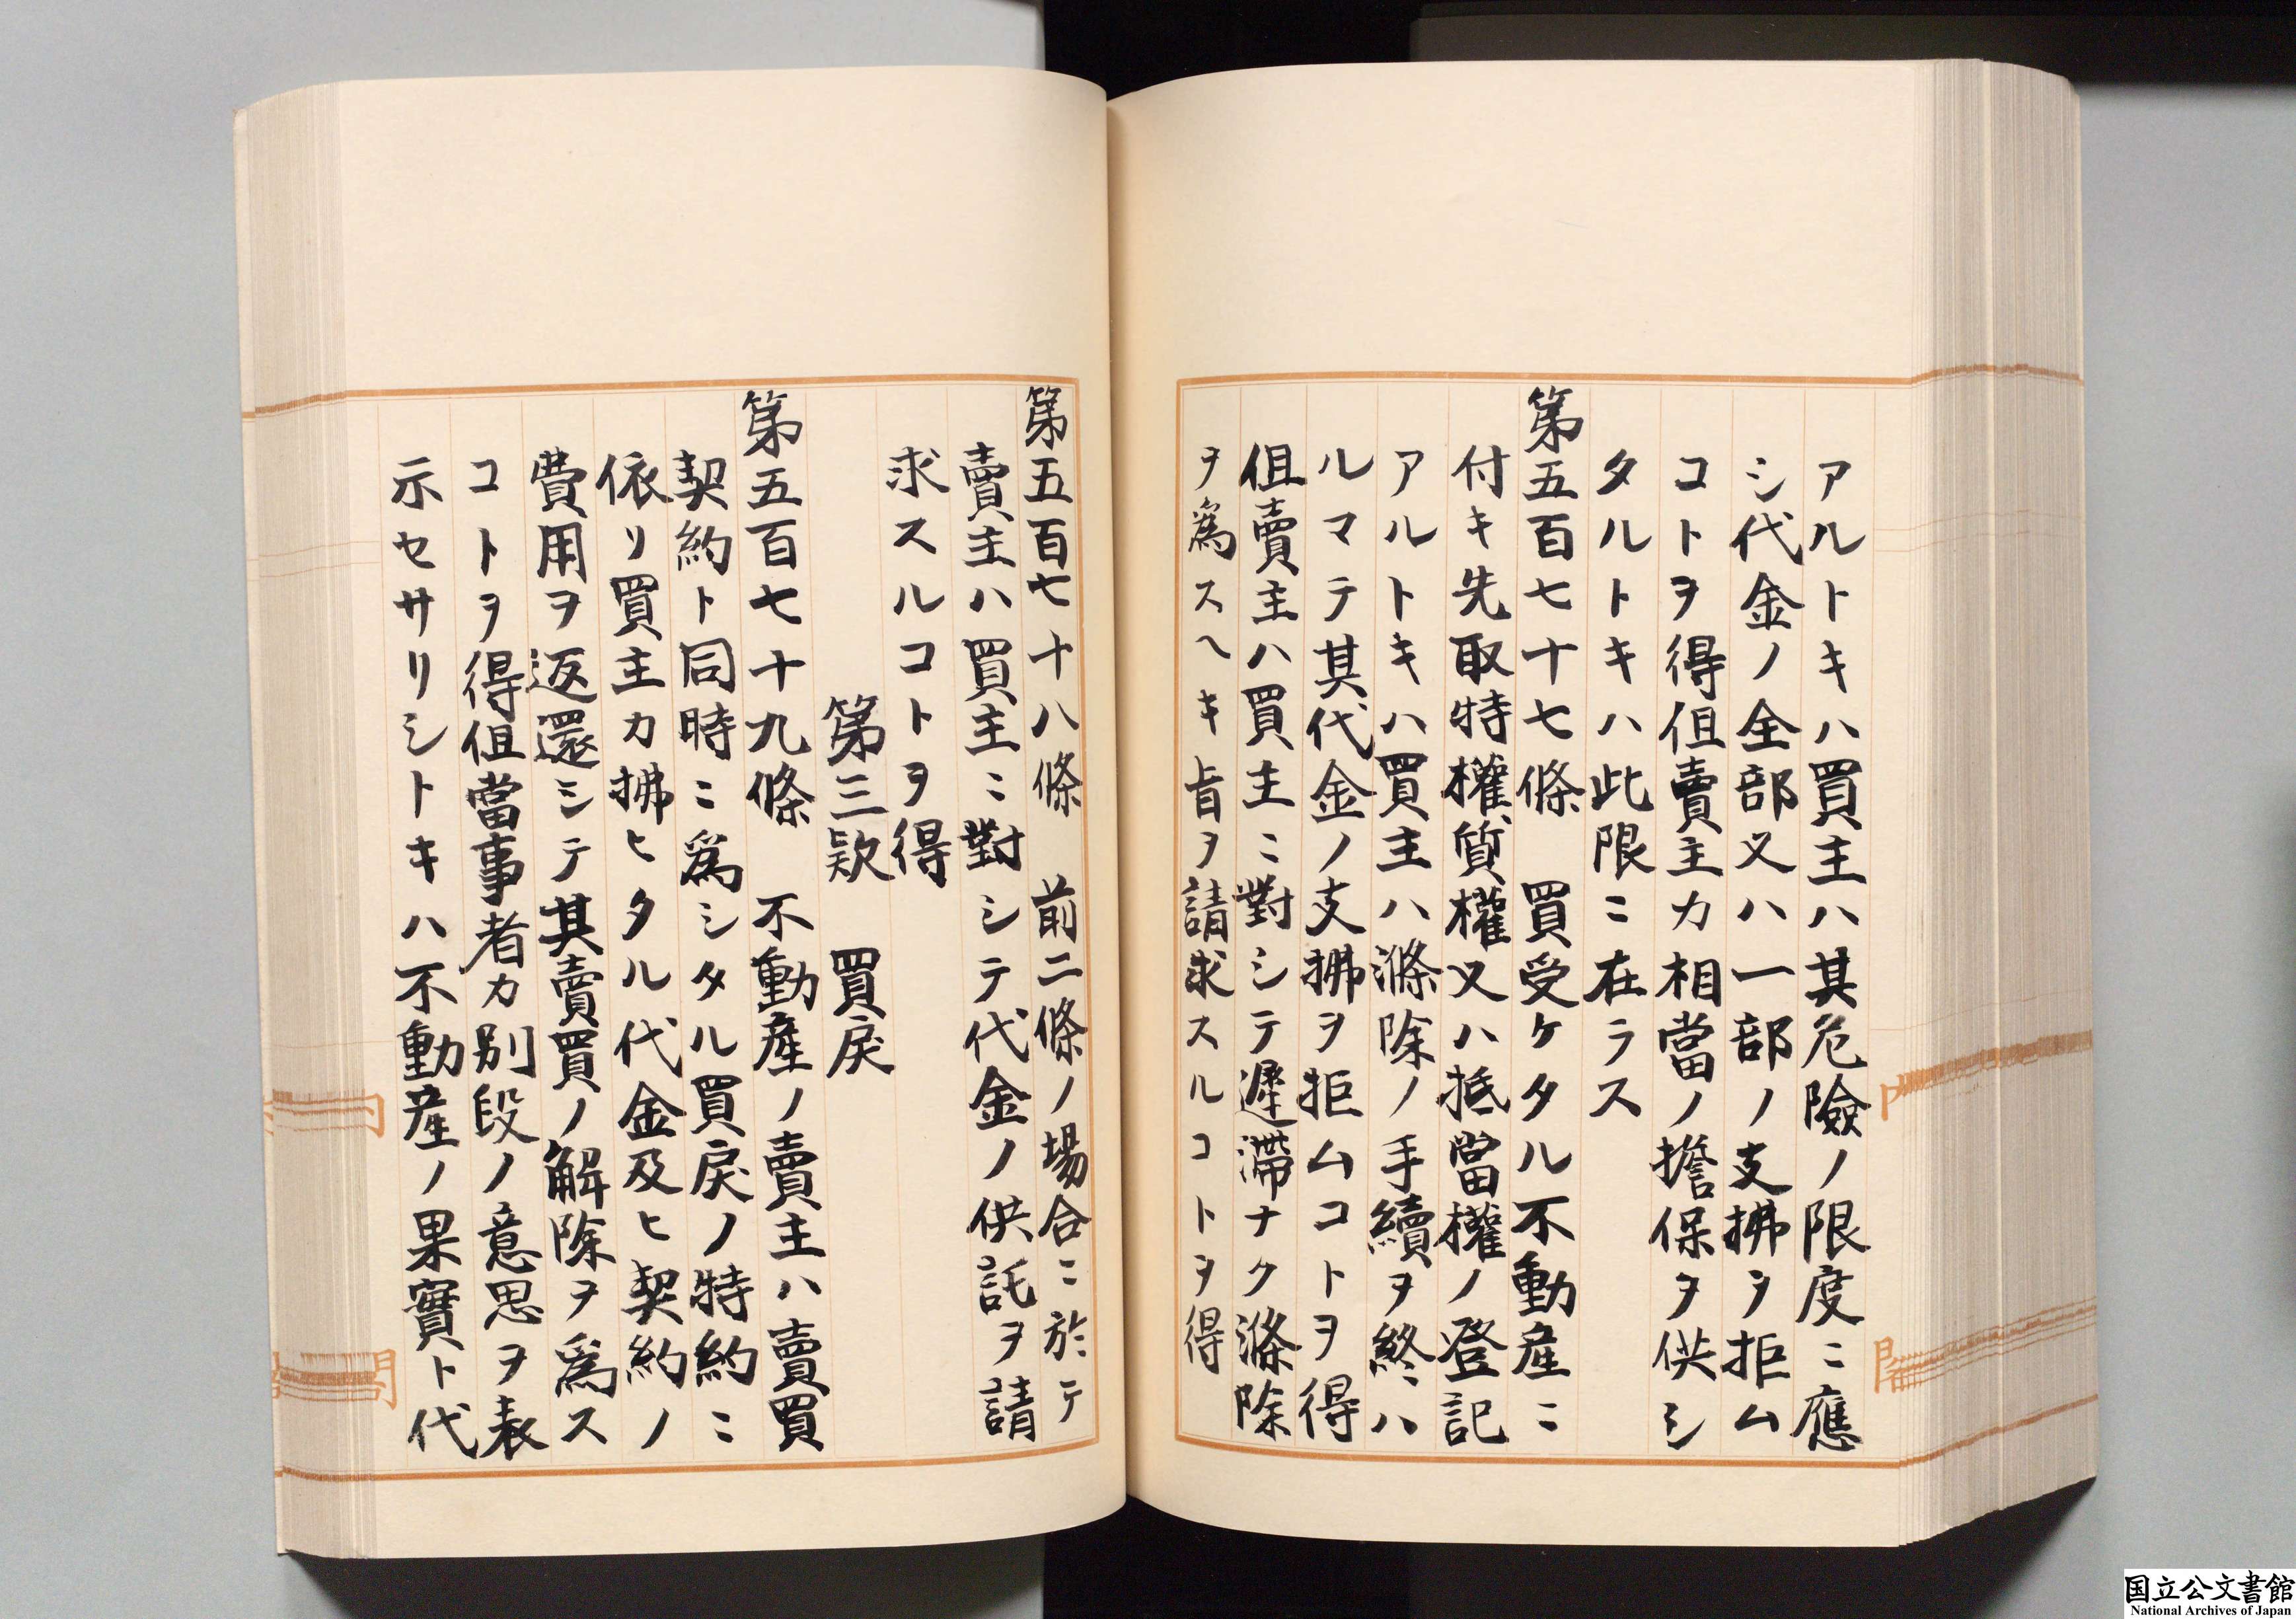 アルトキハ買主ハ其危險ノ限度ニ應
シ代金ノ全部又ハ一部ノ支拂ヲ拒ム
コトヲ得但賣主カ相當ノ擔保ヲ供シ
タルトキハ此限ニ在ラス
第五百七十七條 買受ケタル不動産ニ
付キ先取特權質權又ハ抵當權ノ登記
アルトキハ買主ハ滌除ノ手續ヲ終ハ
ルマテ其代金ノ支拂ヲ拒ムコトヲ得
但賣主ハ買主ニ對シテ遲滯ナク滌除
ヲ爲スヘキ旨ヲ請求スルコトヲ得
第五百七十八條 前二條ノ場合ニ於テ
賣主ハ買主ニ對シテ代金ノ供託ヲ請
求スルコトヲ得
第三款 買戻
第五百七十九條 不動産ノ賣主ハ賣買
契約ト同時ニ爲シタル買戻ノ特約ニ
依リ買主カ拂ヒタル代金及ヒ契約ノ
費用ヲ返還シテ其賣買ノ解除ヲ爲ス
コトヲ得但當事者カ別段ノ意思ヲ表
示セサリシトキハ不動産ノ果實ト代
国立公文書館
National Archives of Japan